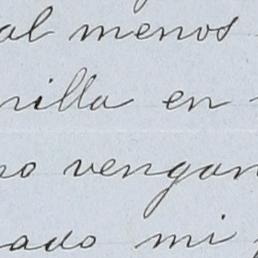 al menos
illa en
no vengan
ado mi